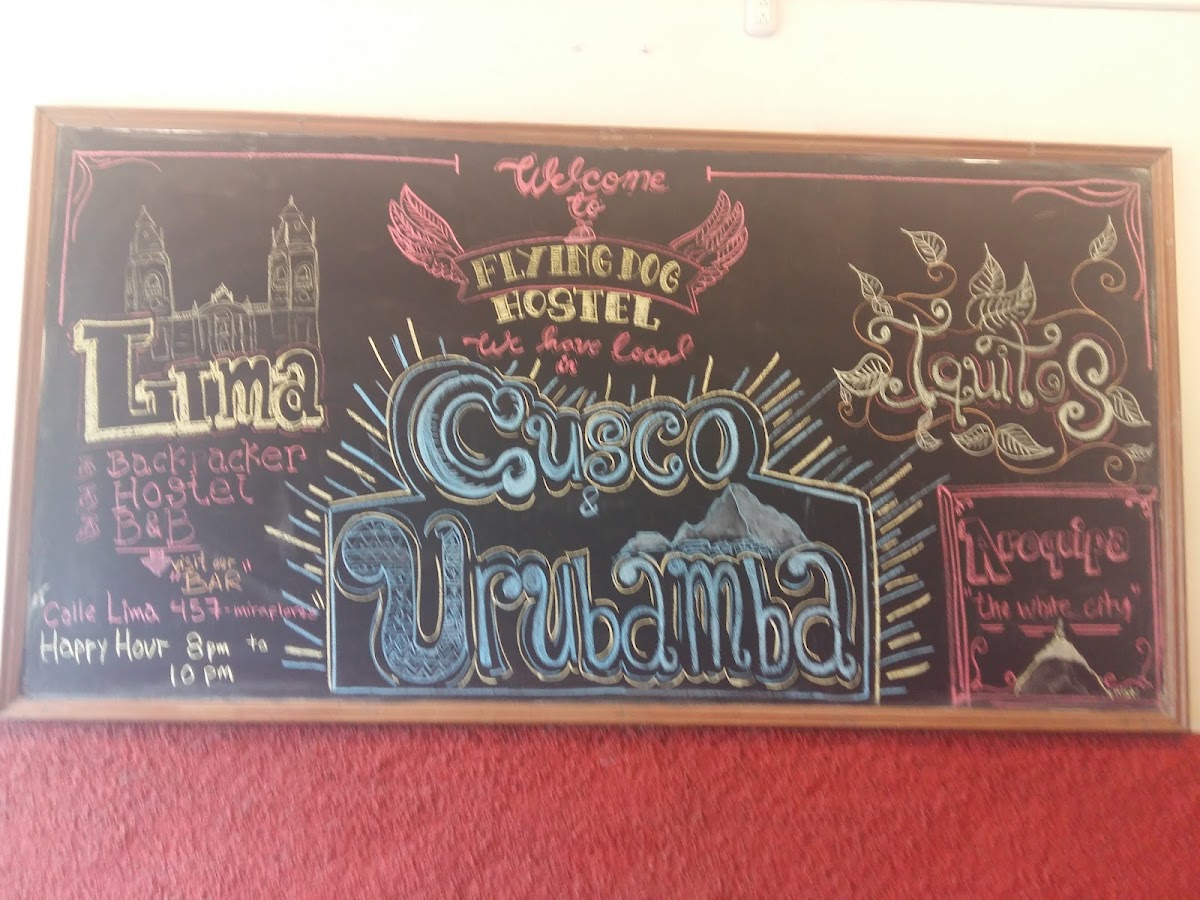 Welcome
to
FLYING DOG
HOSTEL
We have local
in
Lima
Backpacker
Hostel
B&B
visit our
"BAR"
Calle Lima 457 - miraflores
Happy Hour 8pm to
10 pm
Cusco
&
Urubamba
Iquitos
Arequipa
"the white city"